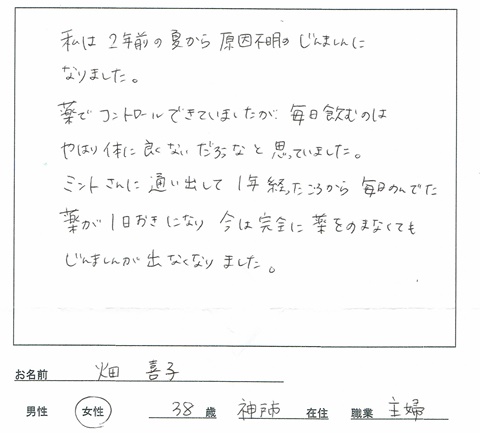 私は 2年前の夏から 原因不明の じんましんに
なりました。
薬で コントロールできていましたが 毎日飲むのは
やはり体に良くないだろうなと 思っていました。
ミントさんに 通い出して 1年経ったころから 毎日のんでた
薬が 1日おきになり 今は完全に 薬をのまなくても
じんましんが出なくなりました。
お名前 畑 喜子
男性 女性 38 歳 神戸市 在住 職業 主婦